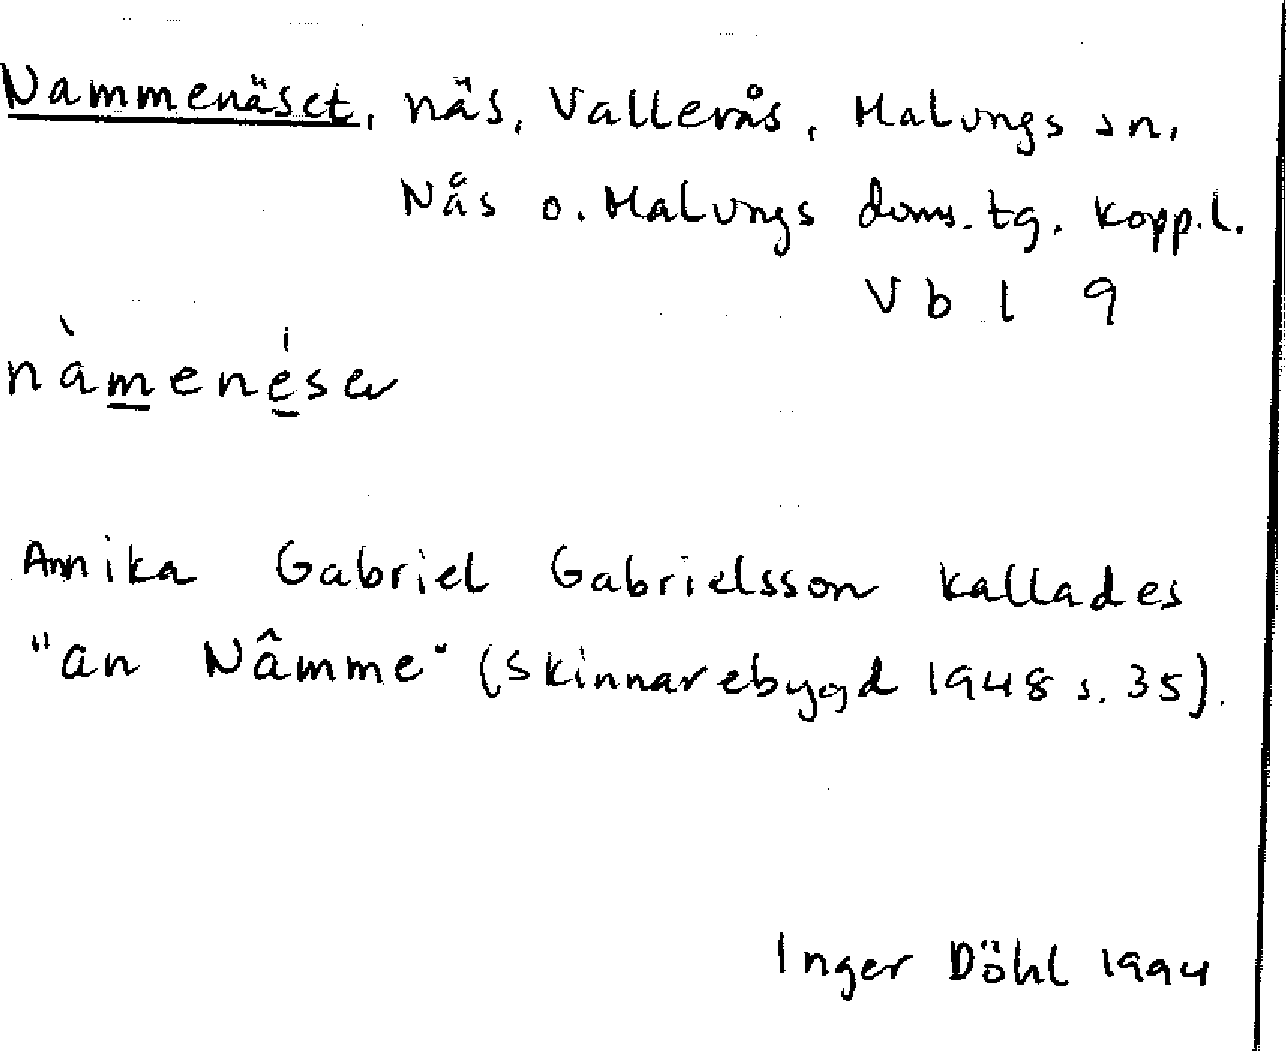 Nammenäset, näs, Vallerås, Malungs sn.
Nås o. Malungs doms. tg. Kopp. l.
V b l 9
nàmenése
Annika Gabriel Gabrielsson kallades
"an Nâmme" (Skinnarebygd 1948 s. 35).
Inger Döhl 1994